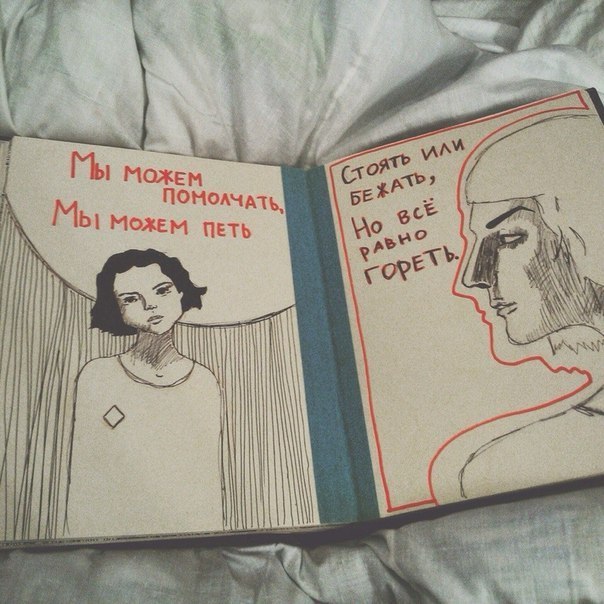 Мы можем
помолчать,
Мы можем петь
Стоять или
бежать,
Но всё
равно
гореть.